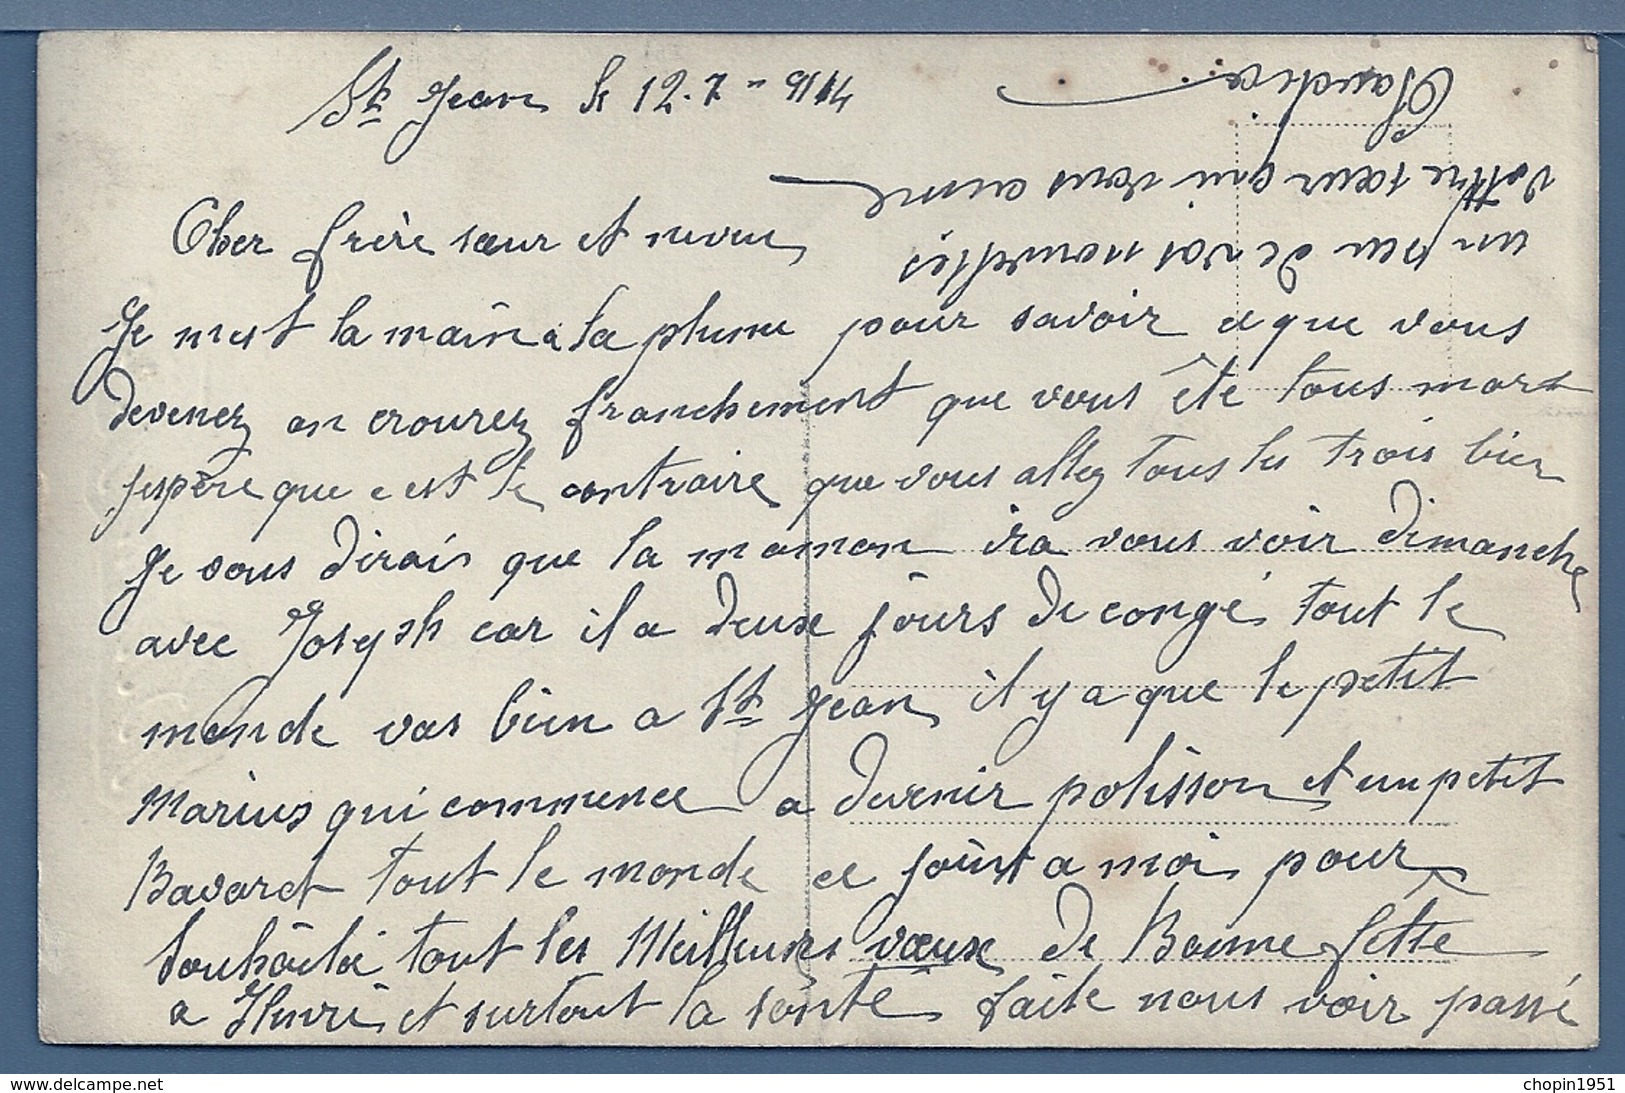 St Jean le 12.7-1914
Cher frère sœur et neveu
Je mest la main a la plume pour savoir ce que vous
devenez on crourez franchement que vous ête tous mort
jespère que c est le contraire que vous allez tous les trois bien
Je vous dirais que la maman ira vous voir dimanche
avec Joseph car il a deux jours de congé tout le
monde vas bien a St Jean il y a que le petit
Marius qui commence a devenir polisson et un petit
Bavard tout le monde ce joint a moi pour
souhaité tout les Meilleures vœux de Bonne fette
a Henri et surtout la santé faite nous voir passé
un peu de vos nouvelles
vottre sœur qui vous aime
Claudia
delcampe.net
chopin1951